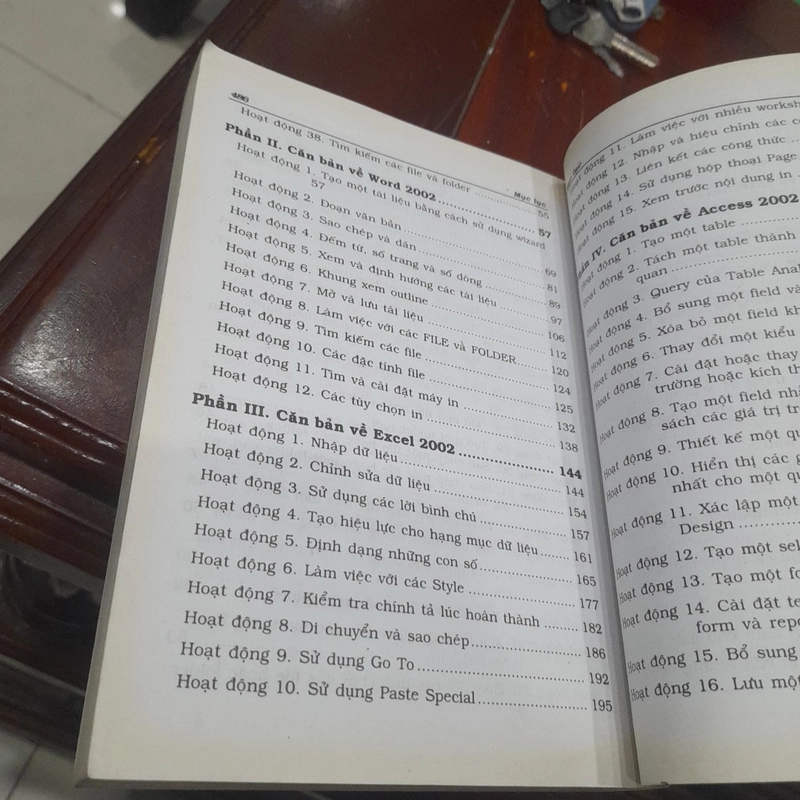 486
Mục lục
Hoạt động 38. Tìm kiếm các file và folder ........ 55
Phần II. Căn bản về Word 2002 ........ 57
Hoạt động 1. Tạo một tài liệu bằng cách sử dụng wizard
57
Hoạt động 2. Đoạn văn bản ........ 69
Hoạt động 3. Sao chép và dán ........ 81
Hoạt động 4. Đếm từ, số trang và số dòng ........ 89
Hoạt động 5. Xem và định hướng các tài liệu ........ 97
Hoạt động 6. Khung xem outline ........ 106
Hoạt động 7. Mở và lưu tài liệu ........ 112
Hoạt động 8. Làm việc với các FILE và FOLDER ........ 120
Hoạt động 9. Tìm kiếm các file ........ 124
Hoạt động 10. Các đặc tính file ........ 125
Hoạt động 11. Tìm và cài đặt máy in ........ 132
Hoạt động 12. Các tùy chọn in ........ 138
Phần III. Căn bản về Excel 2002 ........ 144
Hoạt động 1. Nhập dữ liệu ........ 144
Hoạt động 2. Chỉnh sửa dữ liệu ........ 154
Hoạt động 3. Sử dụng các lời bình chú ........ 157
Hoạt động 4. Tạo hiệu lực cho hạng mục dữ liệu ........ 161
Hoạt động 5. Định dạng những con số ........ 165
Hoạt động 6. Làm việc với các Style ........ 177
Hoạt động 7. Kiểm tra chính tả lúc hoàn thành ........ 182
Hoạt động 8. Di chuyển và sao chép ........ 186
Hoạt động 9. Sử dụng Go To ........ 192
Hoạt động 10. Sử dụng Paste Special ........ 195
Hoạt động 11. Làm việc với nhiều worksh
Hoạt động 12. Nhập và hiệu chỉnh các co
Hoạt động 13. Liên kết các công thức ...
Hoạt động 14. Sử dụng hộp thoại Page
Hoạt động 15. Xem trước nội dung in ..
Phần IV. Căn bản về Access 2002
Hoạt động 1. Tạo một table ........
Hoạt động 2. Tách một table thành
quan ........
Hoạt động 3. Query của Table Anal
Hoạt động 4. Bổ sung một field và
Hoạt động 5. Xóa bỏ một field kh
Hoạt động 6. Thay đổi một kiểu
Hoạt động 7. Cài đặt hoặc thay
trường hoặc kích th
Hoạt động 8. Tạo một field nhã
sách các giá trị tr
Hoạt động 9. Thiết kế một qu
Hoạt động 10. Hiển thị các g
nhất cho một qu
Hoạt động 11. Xác lập một
Design ........
Hoạt động 12. Tạo một sel
Hoạt động 13. Tạo một fo
Hoạt động 14. Cài đặt te
form và repo
Hoạt động 15. Bổ sung
Hoạt động 16. Lưu mộ